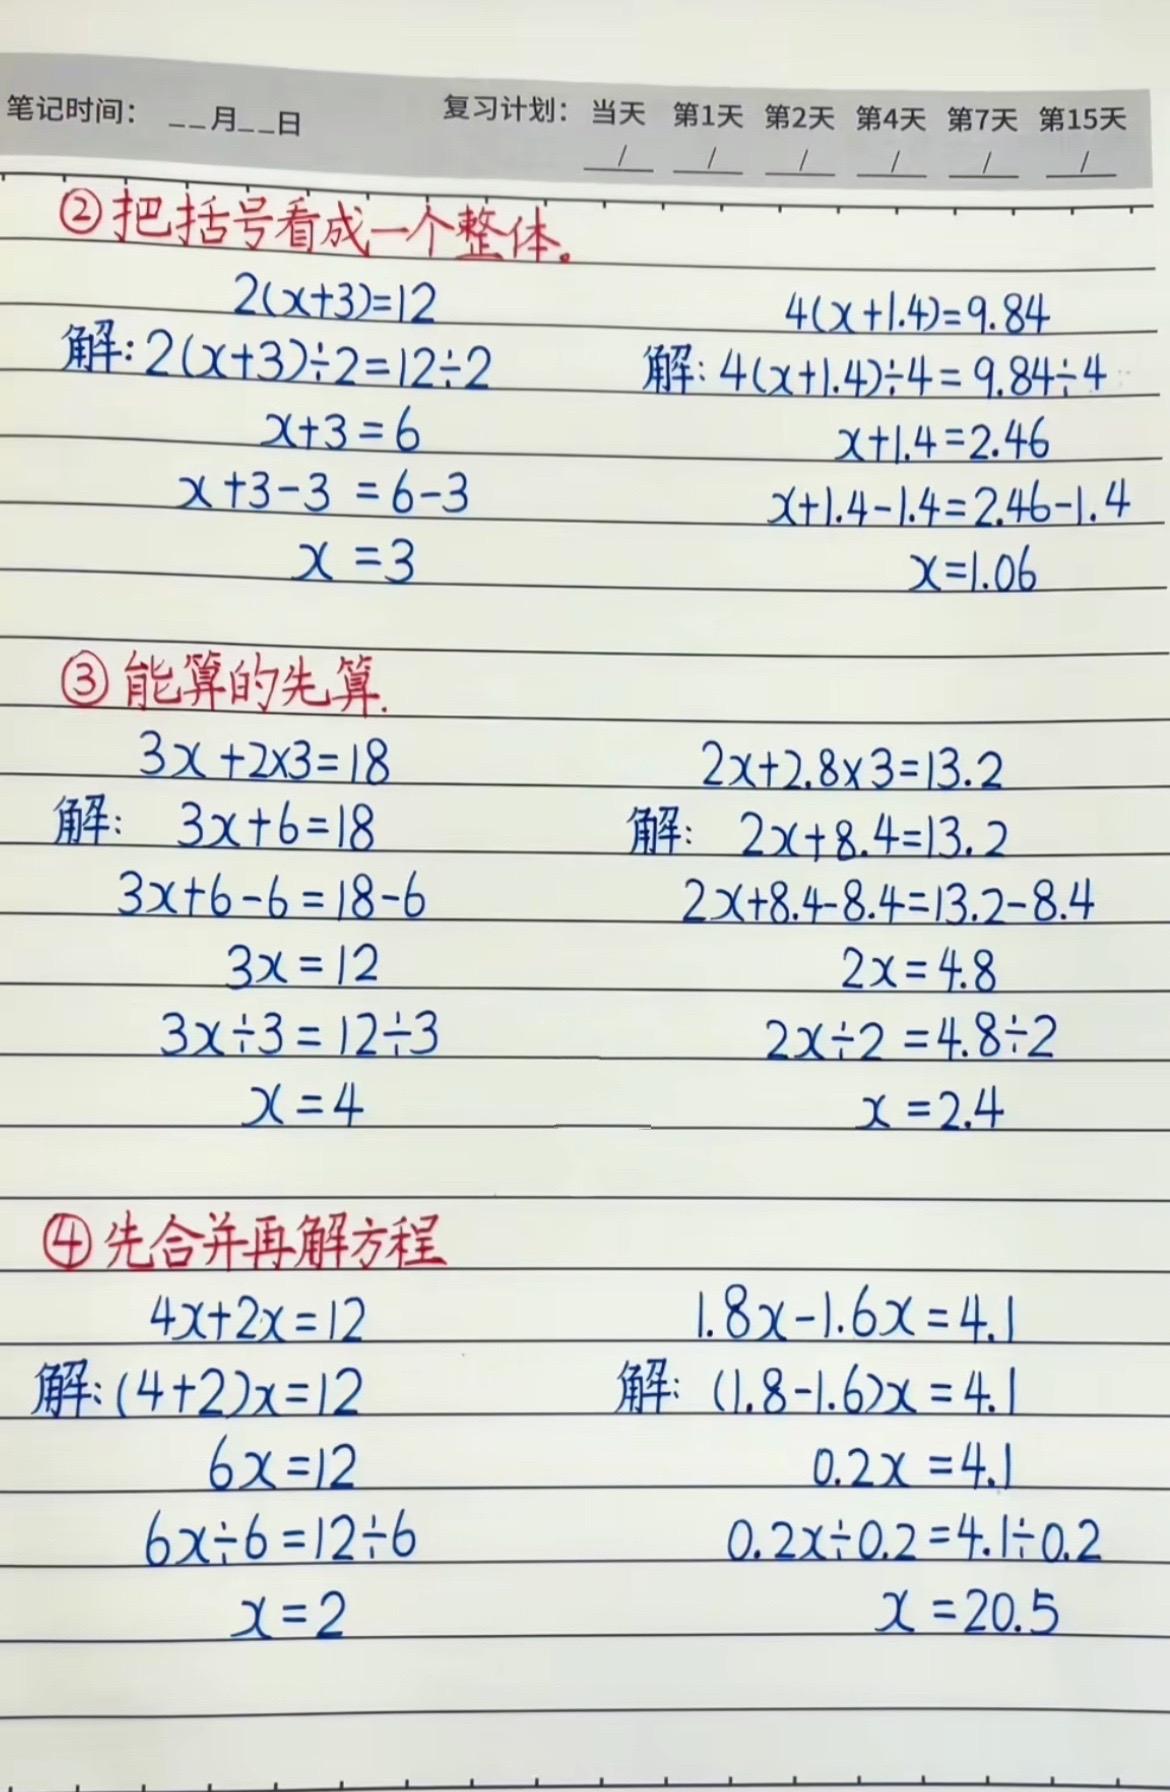 笔记时间： __月__日 复习计划： 当天 第1天 第2天 第4天 第7天 第15天
/ / / / / /
②把括号看成一个整体。
2(x+3)=12 4(x+1.4)=9.84
解:2(x+3)÷2=12÷2 解:4(x+1.4)÷4=9.84÷4
x+3=6 x+1.4=2.46
x+3-3=6-3 x+1.4-1.4=2.46-1.4
x=3 x=1.06
③能算的先算.
3x+2×3=18 2x+2.8×3=13.2
解: 3x+6=18 解: 2x+8.4=13.2
3x+6-6=18-6 2x+8.4-8.4=13.2-8.4
3x=12 2x=4.8
3x÷3=12÷3 2x÷2=4.8÷2
x=4 x=2.4
④先合并再解方程
4x+2x=12 1.8x-1.6x=4.1
解:(4+2)x=12 解:(1.8-1.6)x=4.1
6x=12 0.2x=4.1
6x÷6=12÷6 0.2x÷0.2=4.1÷0.2
x=2 x=20.5